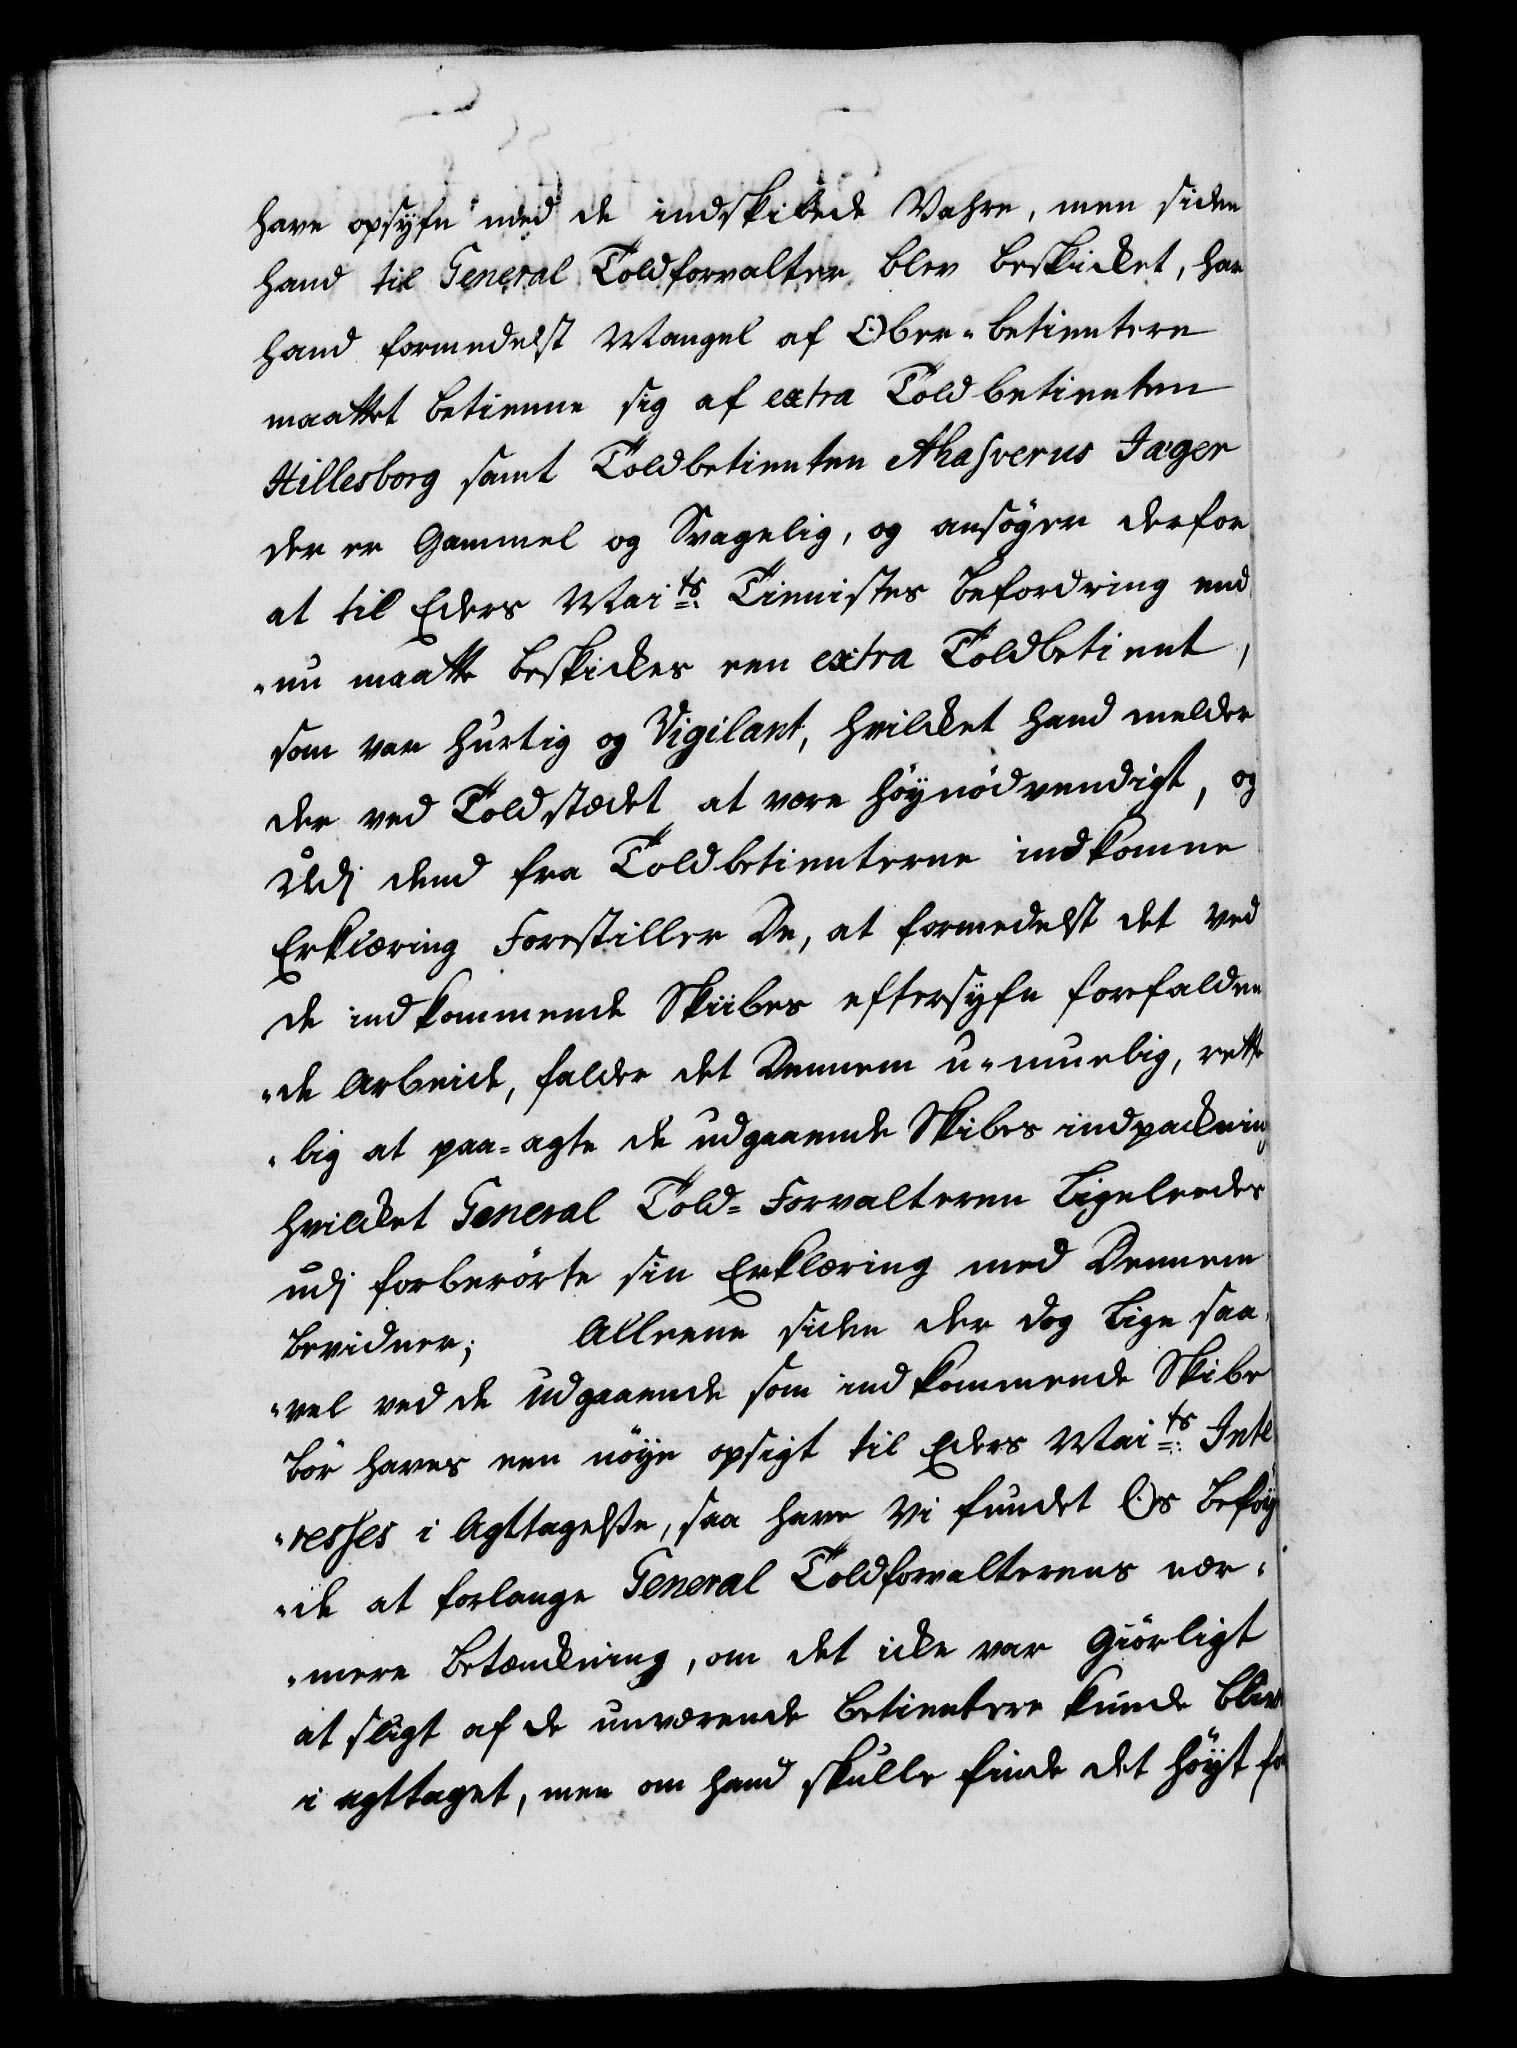 have opsyfn med de indskibede Vahre, men siden
hand til General Toldforvalter blev beskicket, har
hand formedelst Mangel af Ober-betientere
maattet betienne sig af extra Toldbetienten
Hillesborg samt Toldbetienten Ahasverus Jæger
der er Gammel og Svagelig, og ansöger derfor
at til Eders Maits Tiennistes befordring end
"nu maatte beskickes een extra Toldbetient,
som var hurtig og Vigilant, hvilcket hand melder
der ved Toldstædet at være höynödvendigt, og
Udj dend fra Toldbetienterne indkomne
Erklæring Forestiller De, at formedelst det ved
de indkommende Skiibes eftersyfn forefalden
"de Arbeide, falder det Dennem u-muelig, rette
"lig at paa-agte de udgaaende Skibes indpackning
hvilcket General Told-Forvalteren Ligeleedes
udj forberörte sin Erklæring med Dennem
bevidner; Alleene siden der dog Lige saa
"vel ved de udgaaende som indkommende Skibe
bör haves een nöye opsigt til Eders Maits Inte
"resses i Agttagelse, saa have Vi fundet Os beföy
"de at forlange General Toldforvalterens nær-
"mere betænckning, om det icke var Giörligt
at sligt af de nuværende betientere kunde blive
i agttaget, men om hand skulle finde det höyt for